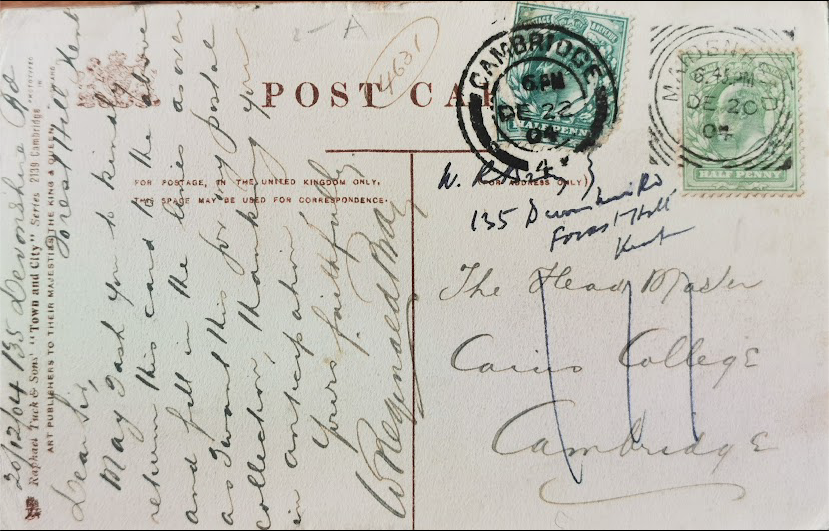 20/12/04 135 Devonshire Rd
Forest Hill Kent
Dear Sir,
May I ask you to kindly
return this card to the above
and fill in the lines as over
as I want this for my postal
collection, thanking you
in anticipation
Yours faithfully
W Reginald Bray
Raphael Tuck & Sons' "Town and City" Series 2139 Cambridge
ART PUBLISHERS TO THEIR MAJESTIES THE KING & QUEEN
4631
POST CA
FOR POSTAGE, IN THE UNITED KINGDOM ONLY,
THIS SPACE MAY BE USED FOR CORRESPONDENCE.
(FOR ADDRESS ONLY)
CAMBRIDGE
6. PM
DE 22
04
4
HALF PENNY
DE 20
04
HALF PENNY
W. R.
135 Devonshire Rd
Forest Hill
Kent
The Head Master
Caius College
Cambridge